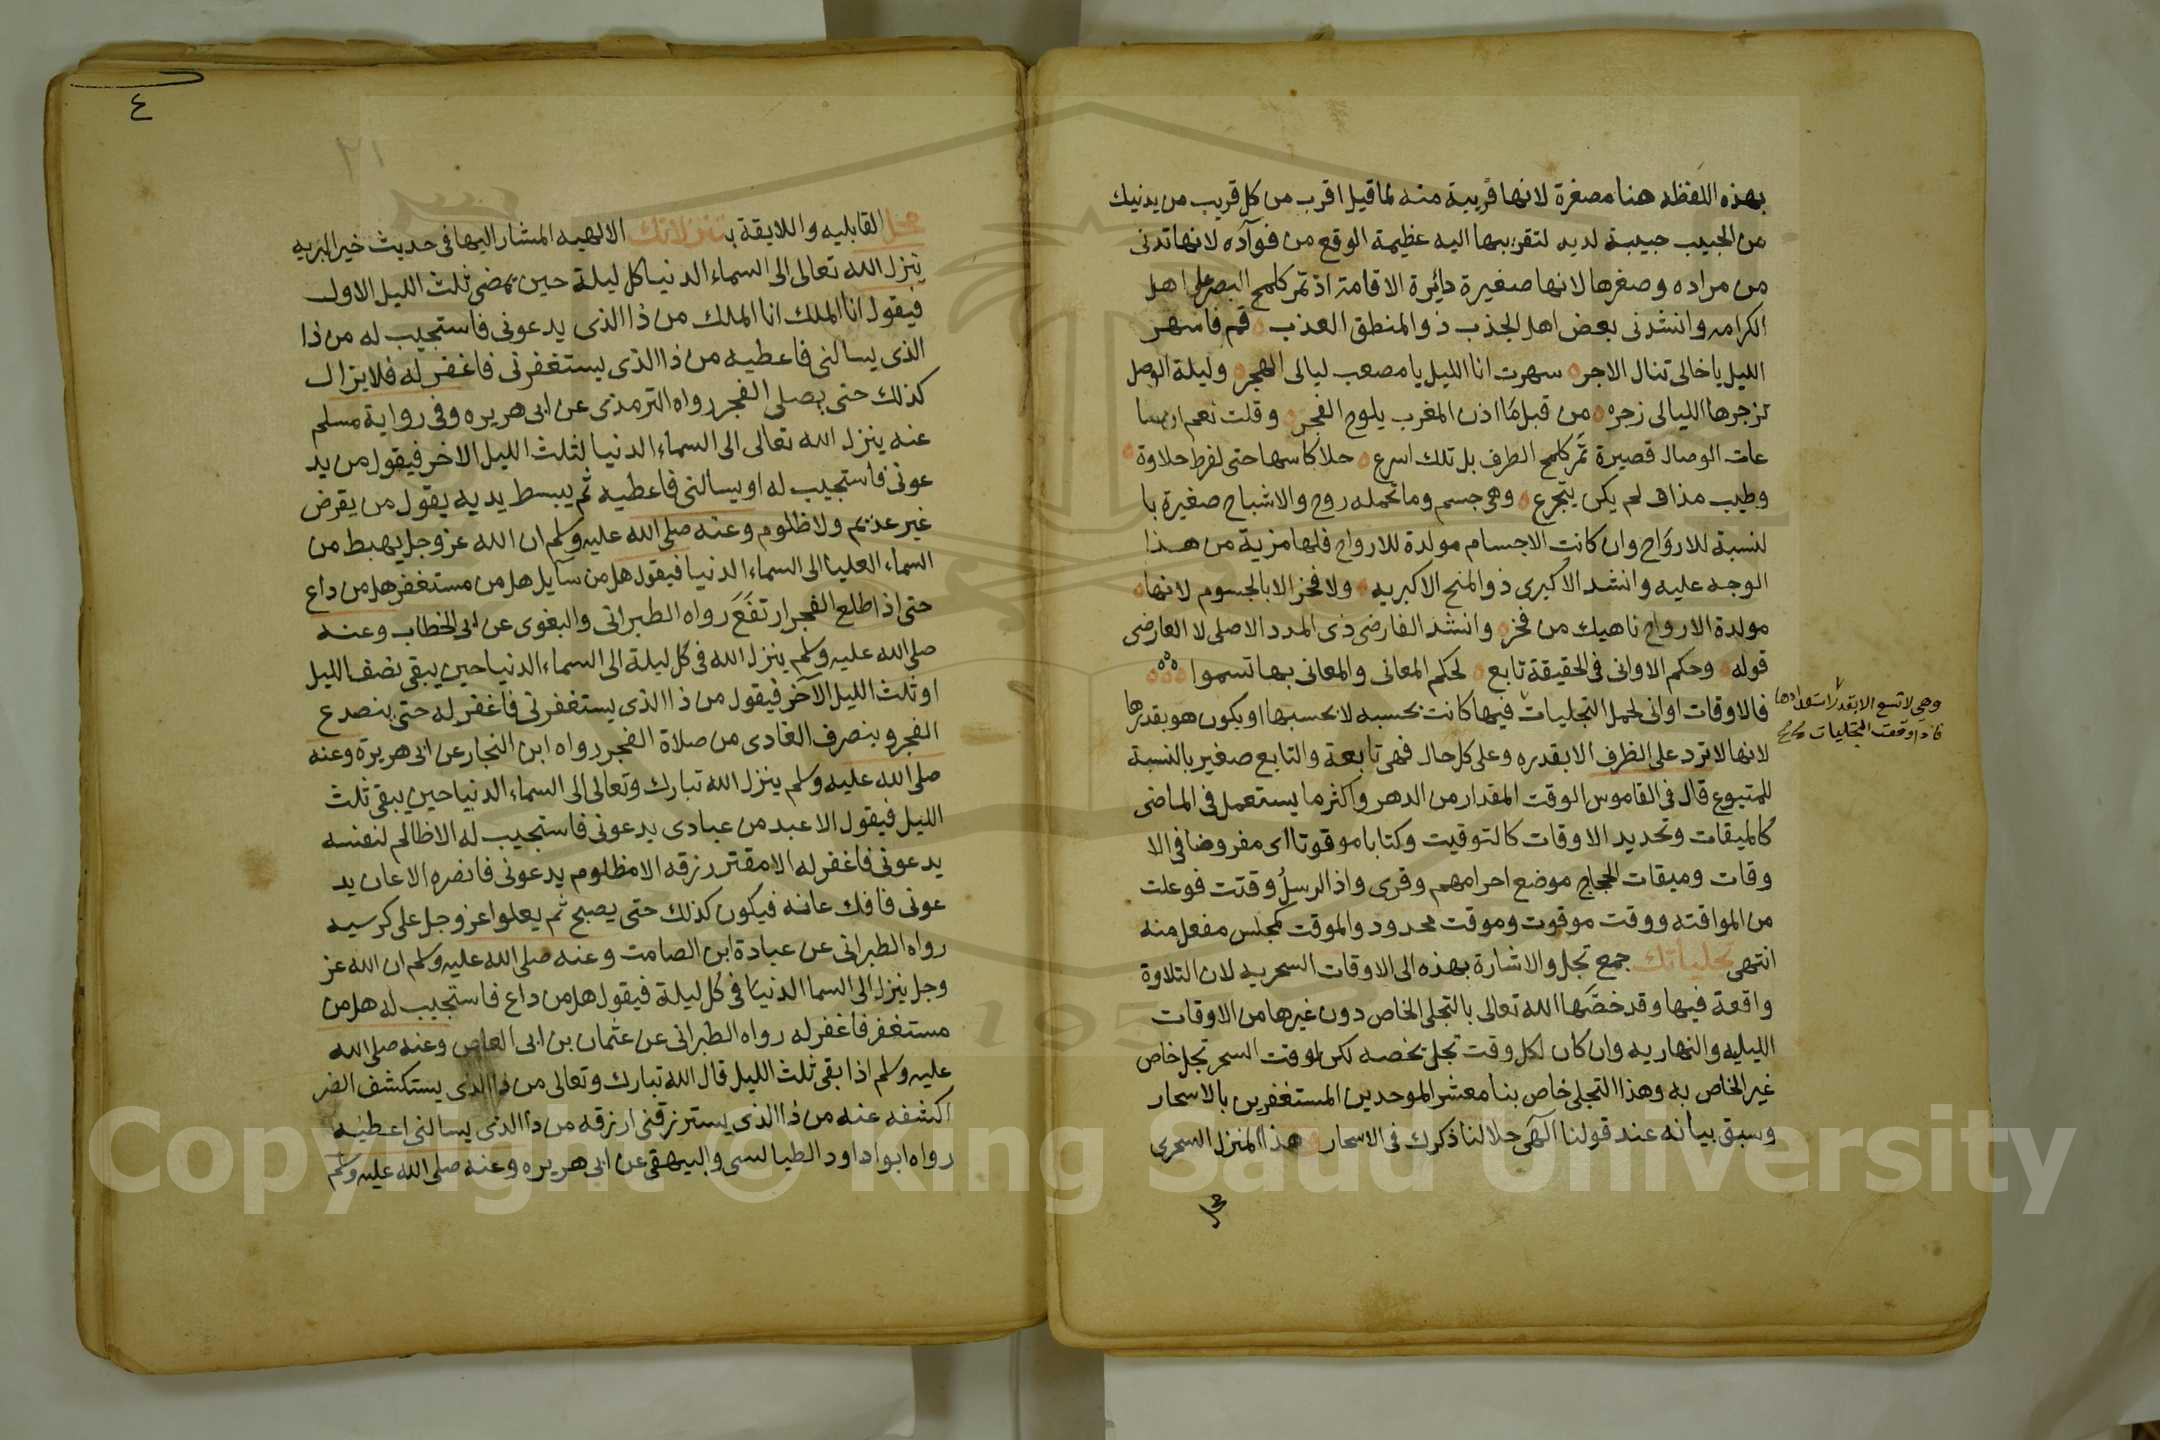 بهذه اللفظه هنا مصغرة لانها قريبة منه لما قيل اقرب من كل قريب من يدنيك
من الحبيب حبيبة لديه لتقريبها اليه عظيمة الوقع من فوآده لانها تدنى
من مراده وصغرها لانها صغيرة دايرة الاقامة اذ تمر كلمح البصر على اهل
الكرامه وانشدنى بعض اهل الجذب ذو المنطق العذب قم فاسهر
الليل يا خالى تنال الاجر سهرت انا الليل يا مصعب ليالى الهجر وليلة الوصل
تزجرها الليالى زجره من قبل ما اذن المغرب يلوح الفجر وقلت نعم
عات الوصال قصيرة تمر كلمح الطرف بل تلك اسرع حلا كاسها حتى لفرط حلاوة
وطيب مذاق لم يكن يتجرع وهى جسم وما تحمله روح والاشباح صغيرة با
لنسبة للارواح وان كانت الاجسام مولدة للارواح فلها مزية من هذا
الوجه عليه وانشد الاكبرى ذو المنح الاكبريه ولا فخر الا بالجسوم لانها
مولدة الارواح ناهيك من فخر وانشد الفارضى ذى المدد الاصلى لا العارضى
قوله وحكم الاوانى فى الحقيقة تابع لحكم المعانى والمعانى بها تسموا
فالاوقات اوانى لحمل التجليات فيها كانت بحسبه لا بحسبها او يكون هو بقدرها
وهى لا تسع الا بقدر استعدادها
فاذا وقعت التجليات صح
لانها لا ترد على الظرف الا بقدره وعلى كل حال فهى تابعة والتابع صغير بالنسبة
للمتبوع قال فى القاموس الوقت المقدار من الدهر واكثر ما يستعمل فى الماضى
كالميقات وتحديد الاوقات كالتوقيت وكتابا موقوتا اى مفروضا فى الا
وقات وميقات الحجاج موضع احرامهم وقرى واذا الرسل وقتت فوعلت
من المواقته ووقت موقوت وموقت محدود والموقت كمجلس مفعل منه
انتهى تجلياتك جمع تجل والاشارة بهذه الى الاوقات السحريه لان التلاوة
واقعة فيها وقد خصها الله تعالى بالتجلى الخاص دون غيرها من الاوقات
الليليه والنهاريه وان كان لكل وقت تجلى تخصه لكن لوقت السحر تجل خاص
غير الخاص به وهذا التجلى خاص بنا معشر الموحدين المستغفرين بالاسحار
وسبق بيانه عند قولنا الهى حلا لنا ذكرك فى الاسحار هذا المنزل السحرى
محل
٤
٢١
محل القابليه واللايقة بتنزلاتك الالهيه المشار اليها فى حديث خير البريه
ينزل الله تعالى الى السماء الدنيا كل ليلة حين تمضى ثلث الليل الاول
فيقول انا الملك انا الملك من ذا الذى يدعونى فاستجيب له من ذا
الذى يسالنى فاعطيه من ذا الذى يستغفرنى فاغفر له فلا يزال
كذلك حتى يصلى الفجر رواه الترمذى عن ابى هريره وفى رواية مسلم
عنه ينزل الله تعالى الى السماء الدنيا لثلث الليل الاخر فيقول من يد
عونى فاستجيب له او يسالنى فاعطيه ثم يبسط يديه يقول من يقرض
غير عديم ولا ظلوم وعنه صلى الله عليه وسلم ان الله عز وجل يهبط من
السماء العليا الى السماء الدنيا فيقول هل من سآيل هل من مستغفر هل من داع
حتى اذا طلع الفجر ارتفع رواه الطبرانى والبغوى عن ابى الخطاب وعنه
صلى الله عليه وسلم ينزل الله فى كل ليلة الى السماء الدنيا حين يبقى نصف الليل
او ثلث الليل الاخر فيقول من ذا الذى يستغفرنى فاغفر له حتى ينصدع
الفجر وينصرف الغادى من صلاة الفجر رواه ابن النجار عن ابى هريرة وعنه
صلى الله عليه وسلم ينزل الله تبارك وتعالى الى السماء الدنيا حين يبقى ثلث
الليل فيقول الا عبد من عبادى يدعونى فاستجيب له الا ظالم لنفسه
يدعونى فاغفر له الا مقتر رزقه الا مظلوم يدعونى فانصره الا عان يد
عونى فافك عانه فيكون كذلك حتى يصبح ثم يعلوا عز وجل على كرسيه
رواه الطبرانى عن عبادة ابن الصامت وعنه صلى الله عليه وسلم ان الله عز
وجل ينزل الى السما الدنيا فى كل ليلة فيقول هل من داع فاستجيب له هل من
مستغفر فاغفر له رواه الطبرانى عن عثمان بن ابى العاص وعنه صلى الله
عليه وسلم اذا بقى ثلث الليل قال الله تبارك وتعالى من ذا الذى يستكشف الضر
اكشفه عنه من ذا الذى يسترزقنى ارزقه من ذا الذى يسالنى اعطيه
رواه ابوا داود الطيالسى والبيهقى عن ابى هريره وعنه صلى الله عليه وسلم
Copyright © King Saud University
195